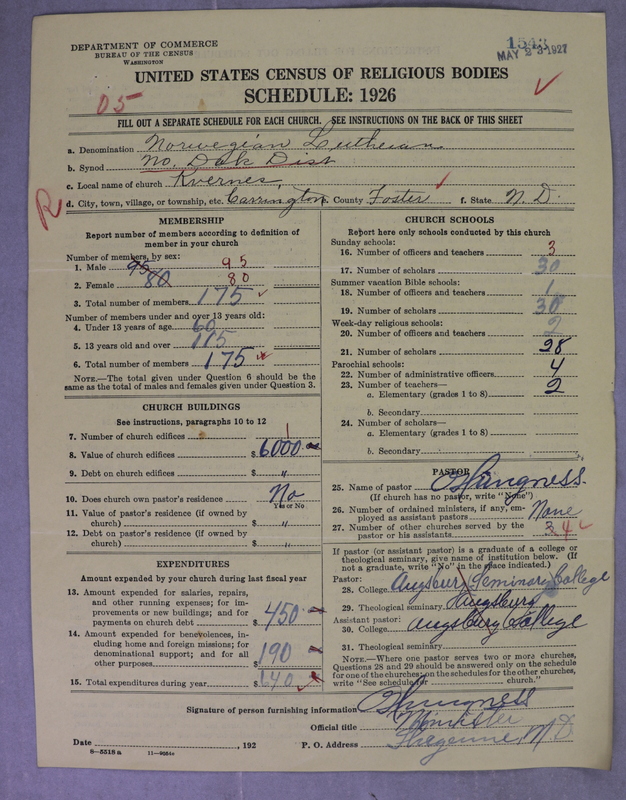 DEPARTMENT OF COMMERCE
BUREAU OF THE CENSUS
WASHINGTON
1543
MAY 23 1927
UNITED STATES CENSUS OF RELIGIOUS BODIES
SCHEDULE: 1926
05
FILL OUT A SEPARATE SCHEDULE FOR EACH CHURCH. SEE INSTRUCTIONS ON THE BACK OF THIS SHEET
a. Denomination Norwegian Lutheran
b. Synod No. Dak Dist
c. Local name of church Kvernes,
R
d. City, town, village, or township, etc. Carrington e. County Foster f. State N. D.
MEMBERSHIP
Report number of members according to definition of member in your church
Number of members, by sex:
1. Male 95 95
2. Female 80 80
3. Total number of members 175
Number of members under and over 13 years old:
4. Under 13 years of age 60
5. 13 years old and over 115
6. Total number of members 175
NOTE.—The total given under Question 6 should be the same as the total of males and females given under Question 3.
CHURCH BUILDINGS
See instructions, paragraphs 10 to 12
7. Number of church edifices 1
8. Value of church edifices $ 6000
9. Debt on church edifices $ "
10. Does church own pastor's residence No
Yes or No
11. Value of pastor's residence (if owned by church) $ "
12. Debt on pastor's residence (if owned by church) $ "
EXPENDITURES
Amount expended by your church during last fiscal year
13. Amount expended for salaries, repairs, and other running expenses; for improvements or new buildings; and for payments on church debt $ 450
14. Amount expended for benevolences, including home and foreign missions; for denominational support; and for all other purposes $ 190
15. Total expenditures during year $ 640
CHURCH SCHOOLS
Report here only schools conducted by this church
Sunday schools:
16. Number of officers and teachers 3
17. Number of scholars 30
Summer vacation Bible schools:
18. Number of officers and teachers 1
19. Number of scholars 30
Week-day religious schools:
20. Number of officers and teachers 2
21. Number of scholars 28
Parochial schools:
22. Number of administrative officers 4
23. Number of teachers— 2
a. Elementary (grades 1 to 8)
b. Secondary
24. Number of scholars—
a. Elementary (grades 1 to 8)
b. Secondary
PASTOR
25. Name of pastor
(If church has no pastor, write "None")
26. Number of ordained ministers, if any, employed as assistant pastors None
27. Number of other churches served by the pastor or his assistants 3 4
If pastor (or assistant pastor) is a graduate of a college or theological seminary, give name of institution below. (If not a graduate, write "No" in the place indicated.)
Pastor:
28. College Augsburg Seminary College
29. Theological seminary Augsburg
Assistant pastor:
30. College Augsburg College
31. Theological seminary
NOTE.—Where one pastor serves two or more churches, Questions 28 and 29 should be answered only on the schedule for one of the churches; on the schedules for the other churches, write "See schedule for church."
Signature of person furnishing information
Official title Minister
Date , 192
P. O. Address Cheyenne, N. D.
8—5518 a 11—9054a